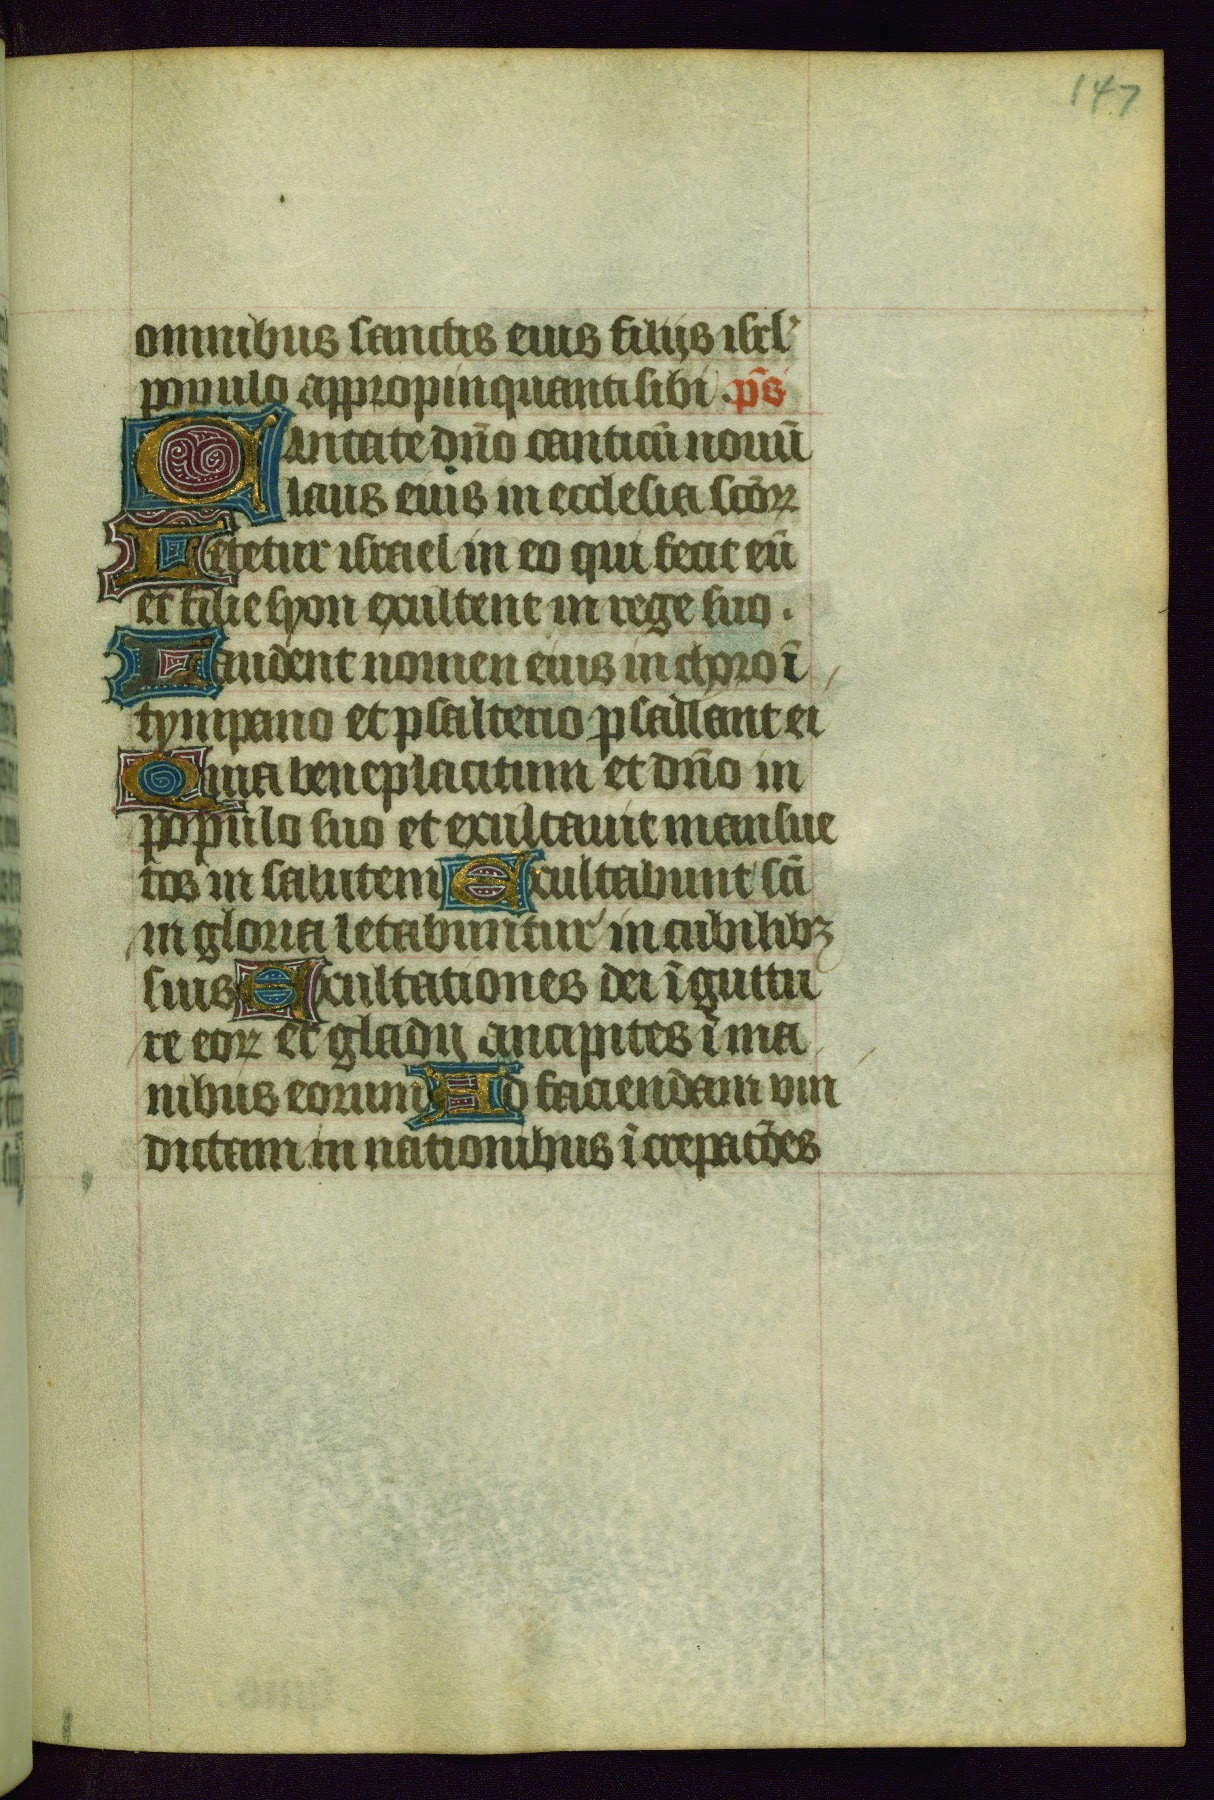 147
omnibus sanctis eius filijs isrl'
populo appropinquanti sibi . ps̄
Cantate dn̄o canticū nouū
laus eius in ecclesia sc̄oꝝ
Letetur israel in eo qui fecit eū
et filie syon exultent in rege suo .
Laudent nomen eius in choro ī
tympano et psalterio psallant ei
Quia beneplacitum et dn̄o in
populo suo et exultauit mansue
tos in salutem Exultabunt sc̄i
in gloria letabuntur in cubilibꝫ
suis Exultationes dei ī guttu
re eoꝝ et gladij ancipites ī ma
nibus eorum Ad faciendam vin
dictam in nationibus īcrepatōes